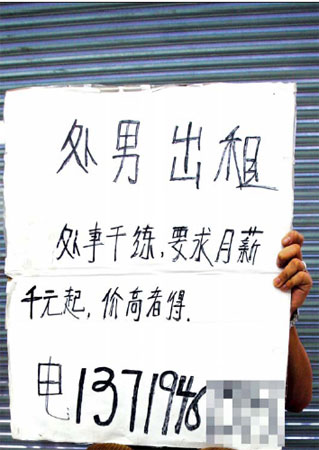 处男出租
处事干练,要求月薪
千元起,价高者得.
电1371946